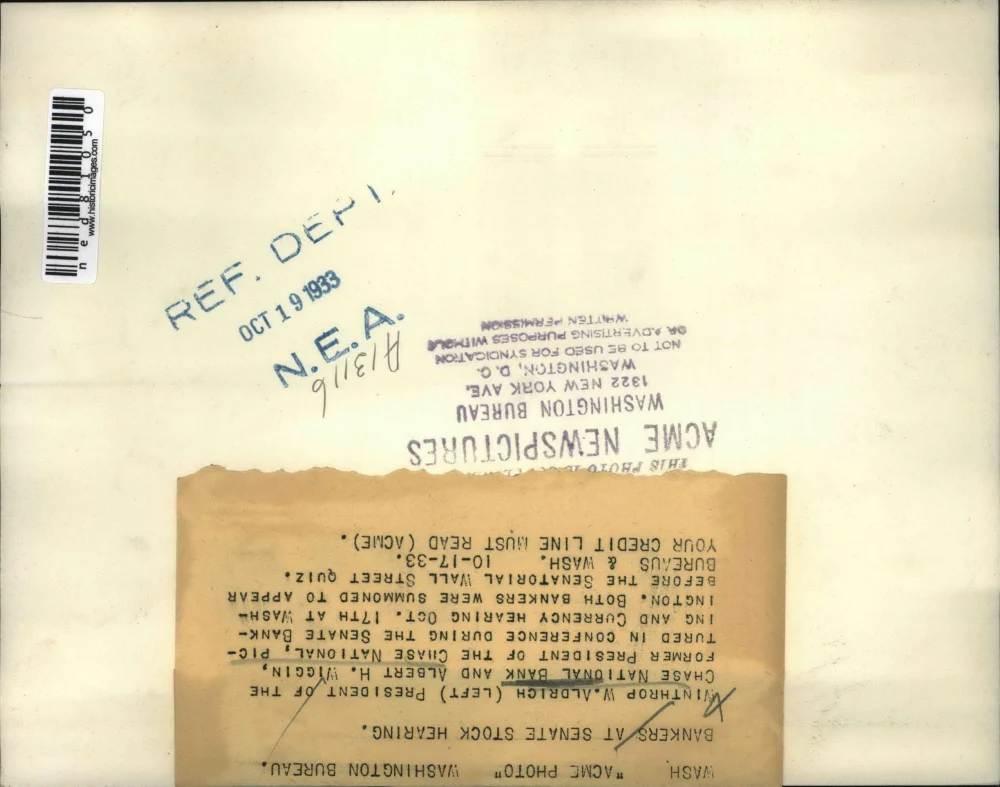 ned81050
www.historicimages.com
REF. DEPT.
OCT 19 1933
N.E.A.
A13116
THIS PHOTO
ACME NEWSPICTURES
WASHINGTON BUREAU
1322 NEW YORK AVE.
WASHINGTON, D. C.
NOT TO BE USED FOR SYNDICATION
OR ADVERTISING PURPOSES WITHOUT
WRITTEN PERMISSION
WASH "ACME PHOTO" WASHINGTON BUREAU.
BANKERS AT SENATE STOCK HEARING.
WINTHROP W.ALDRICH (LEFT) PRESIDENT OF THE
CHASE NATIONAL BANK AND ALBERT H. WIGGIN,
FORMER PRESIDENT OF THE CHASE NATIONAL, PIC-
TURED IN CONFERENCE DURING THE SENATE BANK-
ING AND CURRENCY HEARING OCT. 17TH AT WASH-
INGTON. BOTH BANKERS WERE SUMMONED TO APPEAR
BEFORE THE SENATORIAL WALL STREET QUIZ.
BUREAUS & WASH. 10-17-33.
YOUR CREDIT LINE MUST READ (ACME).